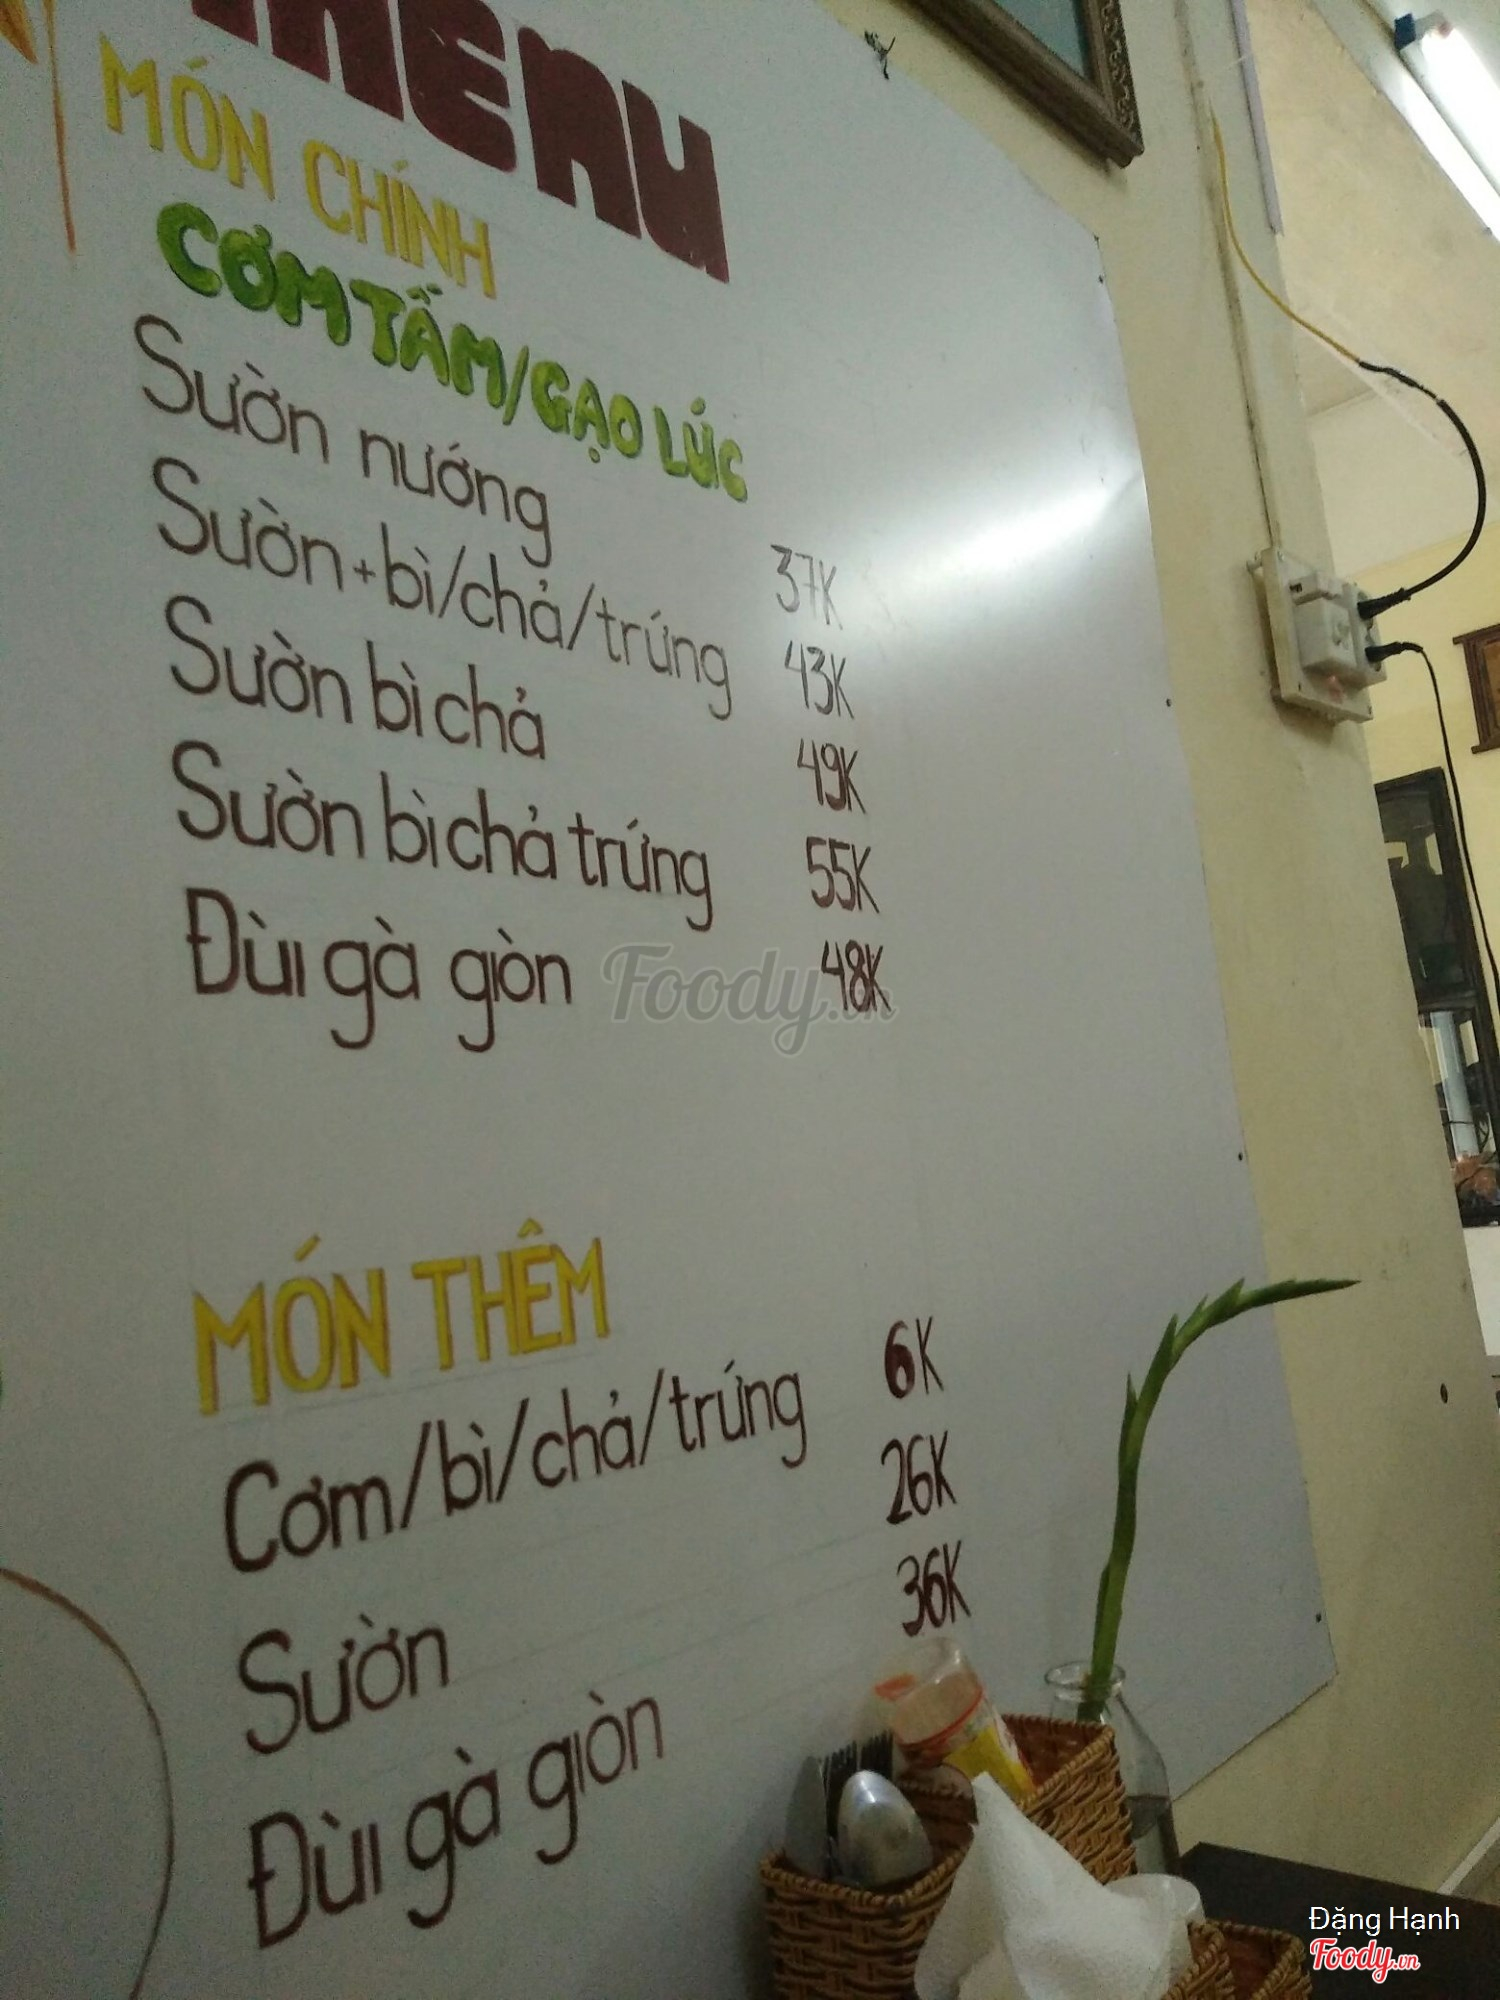 MENU
MÓN CHÍNH
CƠM TẤM/GẠO LỨC
Sườn nướng 37K
Sườn+bì/chả/trứng 43K
Sườn bì chả 49K
Sườn bì chả trứng 55K
Đùi gà giòn 48K
Foody.vn
MÓN THÊM
Cơm/bì/chả/trứng 6K
Sườn 26K
Đùi gà giòn 36K
Đặng Hạnh
Foody.vn